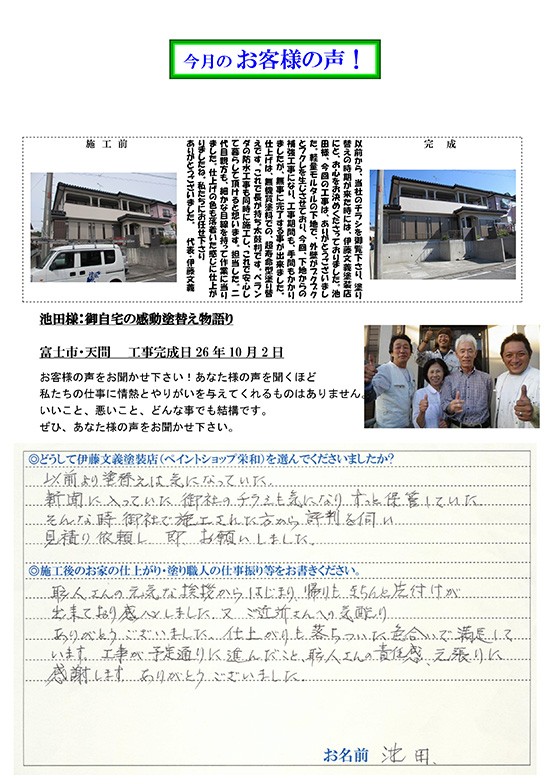 今月の お客様の声！
施 工 前
以前から、当社のチラシを御覧下さり、塗り
替えの時期が来た時には、伊藤文義塗装店
にと、お心をお決めくださっておりました。池
田様、今回の工事は、ありがとうございまし
た。軽量モルタルの下地で、外壁がプクプク
とフクレを生じさせており、今回、下地からの
補強工事になり、工事期間も、手間もかかり
ましたが、無事に完了する事が出来ました。
仕上げは、無機質塗料での、超寿命型塗り替
えです。これで長が持ち太鼓判です。ベラン
ダの防水工事も同時に施工し、これで安心し
て暮らして頂けると思います。担当した、二
代目親方も、細かな目線を持って作業に当り
ました。仕上げの色も落着いた感じに仕上が
りましたね。私たちにお任せ下さり
ありがとうございました。 代表・伊藤文義
完 成
池田様：御自宅の感動塗替え物語り
富士市・天間 工事完成日26年10月2日
お客様の声をお聞かせ下さい！あなた様の声を聞くほど
私たちの仕事に情熱とやりがいを与えてくれるものはありません。
いいこと、悪いこと、どんな事でも結構です。
ぜひ、あなた様の声をお聞かせ下さい。
◎どうして伊藤文義塗装店（ペイントショップ栄和）を選んでくださいましたか？
以前より塗替えは気になっていた。
新聞に入っていた御社のチラシも気になり、ずっと保管していた。
そんな時 御社で施工された方から評判を伺い
見積り依頼し 即 お願いしました。
◎施工後のお家の仕上がり・塗り職人の仕事振り等をお書きください。
職人さんの元気な挨拶からはじまり、帰りも きちんと片付けが
出来ており感心しました。又 ご近所さんへの気配り
ありがとうございました。仕上がりも落ちついた色合いで満足して
います。工事が予定通りに進んだこと、職人さんの責任感、元張りに
感謝します。ありがとうございました。
お名前 池田、